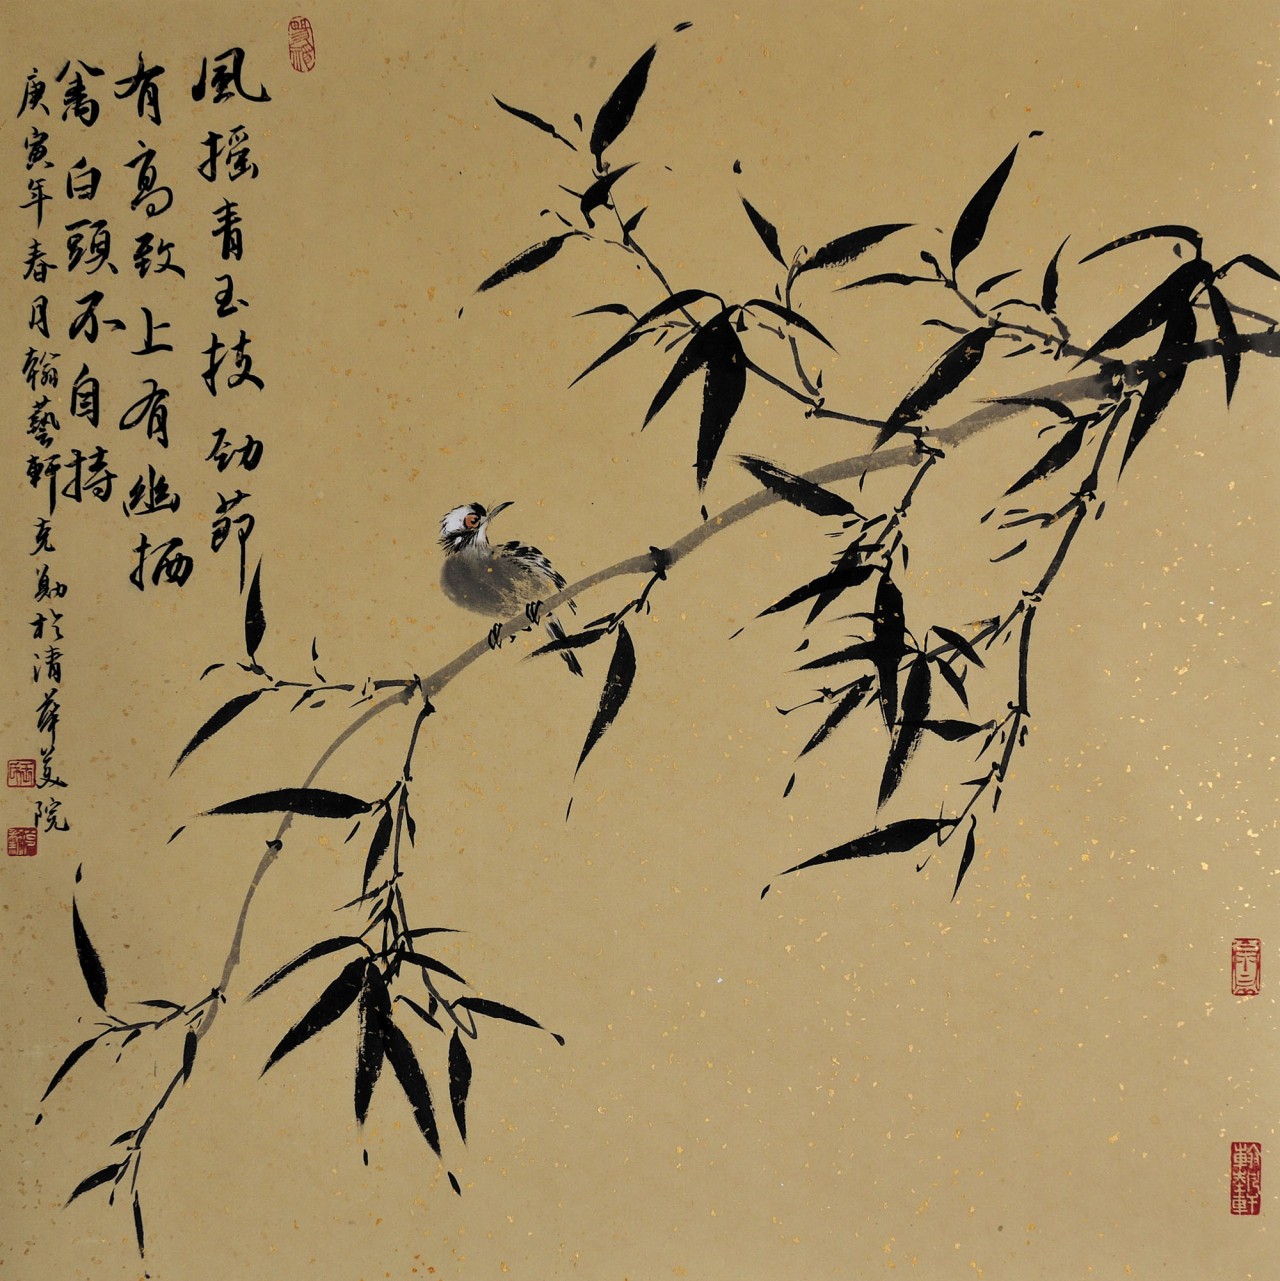 風摇青玉枝劲節
有高致上有幽栖
禽白頭不自持
庚寅年春月翰藝軒克勛於清華美院
翰藝軒